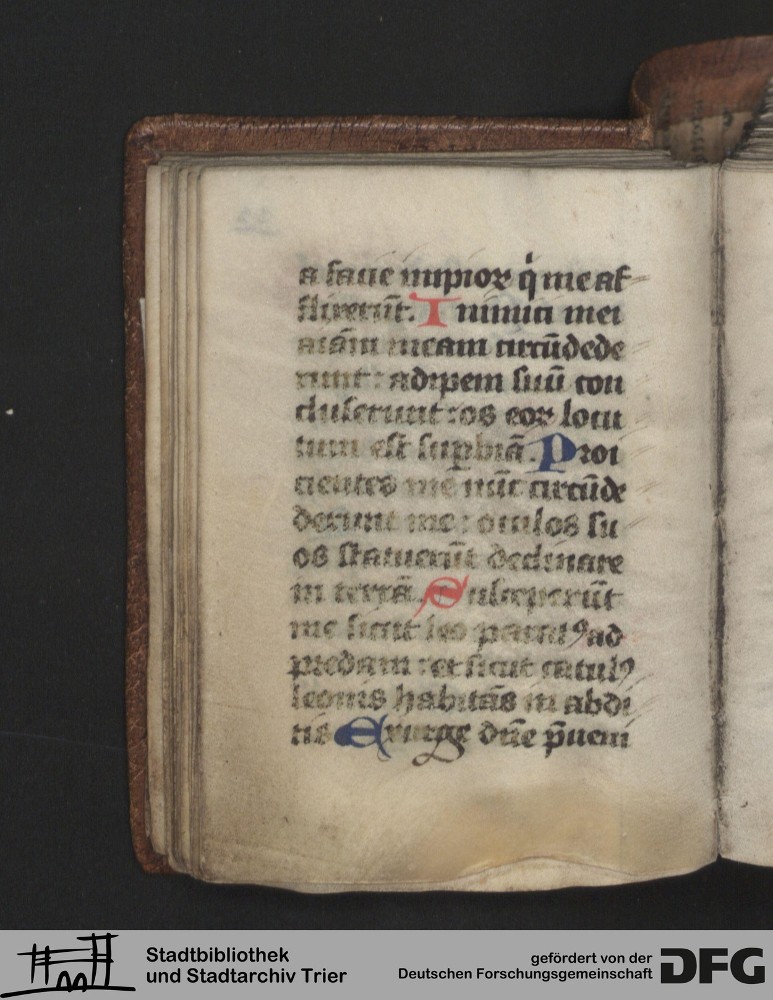 a facie impioꝝ q̇ me af
flixerūt. Inimici mei
aīam meam circūdede
runt : adipem suū con
cluserunt : os eoꝝ locu
tum est supbiā. Proi
cientes me nūc circūde
derunt me : oculos su
os statuerūt declinare
in terrā. Susceperūt
me sicut leo paratꝰ ad
predam : et sicut catulꝰ
leonis habitās in abdi
tis Exurge dn̄e p̄ueni
Stadtbibliothek
und Stadtarchiv Trier
gefördert von der
Deutschen Forschungsgemeinschaft
DFG